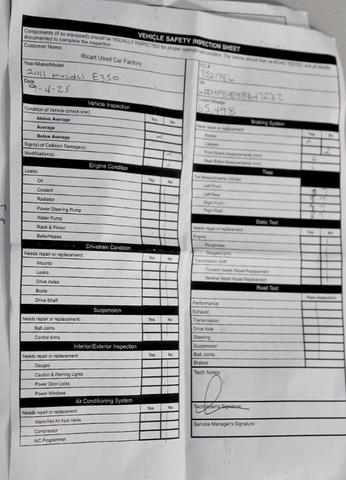 VEHICLE SAFETY INSPECTION SHEET
Components (if so equipped) should be VISUALLY INSPECTED for proper operation and condition. The vehicle should then be ROAD TESTED and all results
documented to complete the inspection.
Customer Name:
Ricart Used Car Factory
Year/Make/Model
2011 E350
Date
9-4-25
Vehicle Inspection
Condition of Vehicle (check one) Yes No
Above Average
Average
Below Average
Sign(s) of Collision Damage(s)
Modification(s)
Engine Condition
Leaks: Yes No
Oil
Coolant
Radiator
Power Steering Pump
Water Pump
Rack & Pinion
Belts/Hoses
Drivetrain Condition
Needs repair or replacement: Yes No
Mounts
Leaks
Drive Axles
Boots
Drive Shaft
Suspension
Needs repair or replacement: Yes No
Ball Joints
Control Arms
Interior/Exterior Inspection
Needs repair or replacement: Yes No
Gauges
Caution & Warning Lights
Power Door Locks
Power Windows
Air Conditioning System
Needs repair or replacement: Yes No
Warm/Hot Air from Vents
Compressor
A/C Programmer
Mileage
Braking System
Needs repair or replacement: Yes No
Front Brake Measurements (mm)
Rear Brake Measurements (mm)
Tires
Tire Measurements
Left Front
Left Rear
Right Front
Right Rear
Static Test
Needs repair or replacement: Yes No
Engine
Roughness
Gauges/Lights
Transmission Shift
Forward Needs Repair/Replacement
Reverse Needs Repair/Replacement
Road Test
Pass Inspection
Performance
Exhaust
Transmission
Drive Axle
Steering
Suspension
Ball Joints
Brakes
Tech Notes:
Technician's Signature:
Service Manager's Signature: